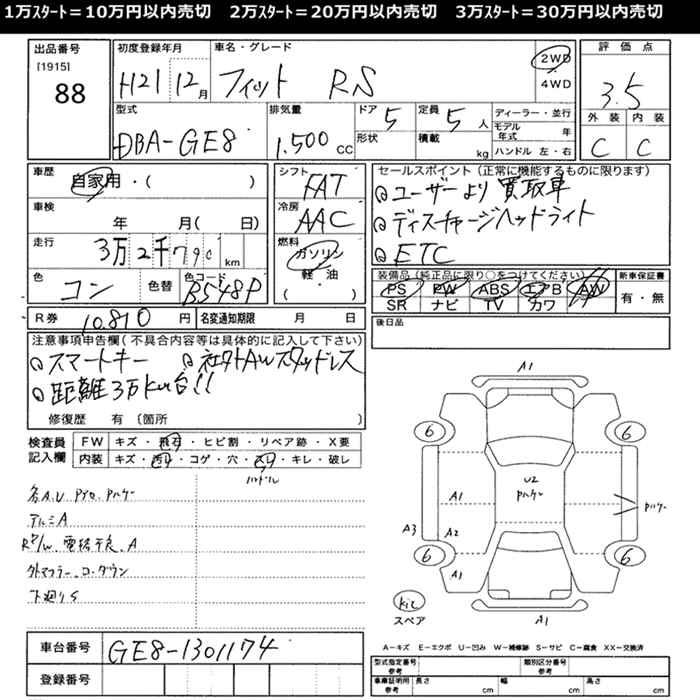 1万スタート＝10万円以内売切　2万スタート＝20万円以内売切　3万スタート＝30万円以内売切
出品番号
[1915]
88
初度登録年月
H21 12月
車名・グレード
フィット RS
2WD
4WD
評価点
3.5
外装 内装
C C
型式
DBA-GE8
排気量
1.500 CC
ドア
5
形状
定員
5人
積載
kg
ディーラー・並行
モデル年式 年
ハンドル 左・右
車歴
自家用・( )
車検
年 月( 日)
走行
3万2千790km
色
コン
色替
色コード
B548P
シフト
FAT
冷房
AAC
燃料
ガソリン
軽・油
( ・ )
セールスポイント(正常に機能するものに限ります)
ユーザーより買取車
ディスチャージヘッドライト
ETC
装備品(純正品に限り○をつけてください)
PS PW ABS エアB AW
SR ナビ TV カワ
新車保証書
有・無
R券 10.810円
名変通知期限 月 日
後日品
注意事項申告欄(不具合内容等は具体的に記入して下さい)
スマートキー 社外AWスタッドレス
距離3万km台!!
修復歴 有〔箇所 〕
検査員記入欄
FW キズ・飛石・ヒビ割・リペア跡・X要
内装 キズ・汚れ・コゲ・穴・スレ・キレ・破レ
ハンドル
各A.U
アルミA
外マフラー.コーダウン
下廻りS
A1
6 6
U2
A1
A3 A2
6 6
A1
スペア
A1
A－キズ E－エクボ U－凹み W－補修跡 S－サビ C－腐食 XX－交換済
車台番号 GE8-1301174
登録番号
型式指定番号 参考
類別区分番号 参考
車庫証明用 参考
長さ cm
幅 cm
高さ cm